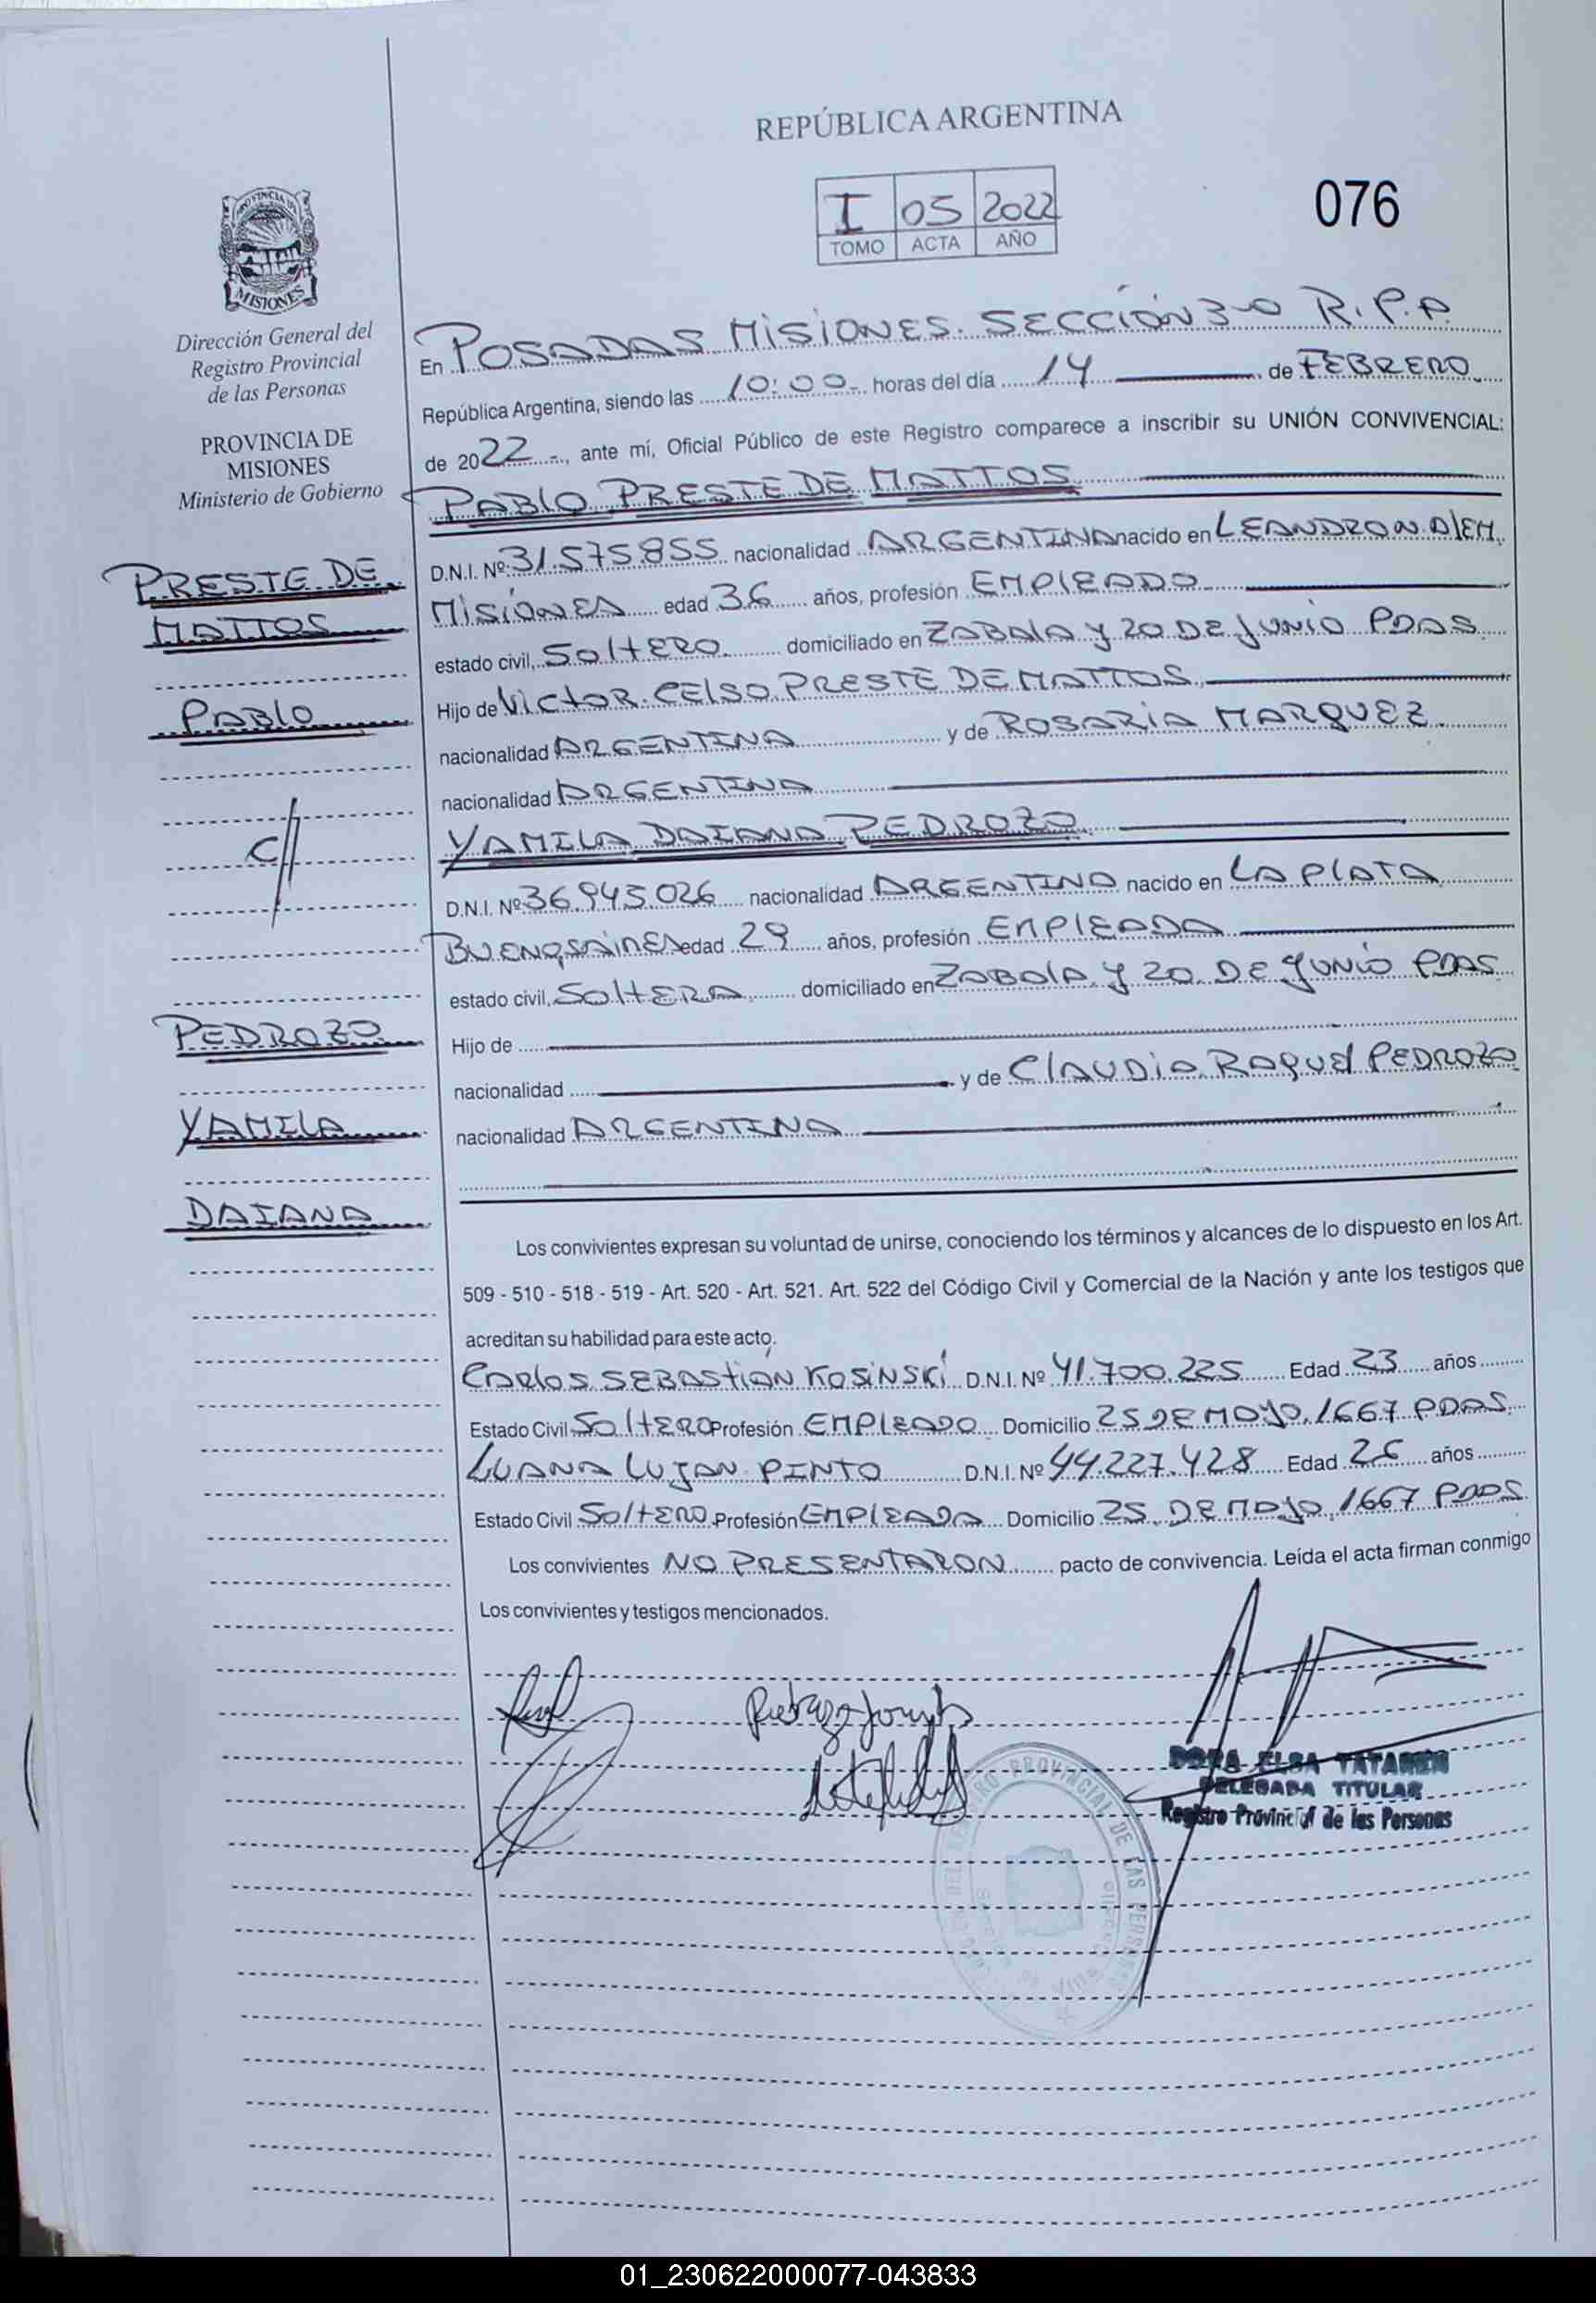 REPÚBLICA ARGENTINA
I 05 2022
TOMO ACTA AÑO
076
PROVINCIA DE
MISIONES
Dirección General del
Registro Provincial
de las Personas
PROVINCIA DE
MISIONES
Ministerio de Gobierno
PRESTE DE
MATTOS
PABLO
C//
PEDROZO
YAMILA
DAIANA
En POSADAS MISIONES. SECCIÓN 3-0 R.P.P.
República Argentina, siendo las 10:00 horas del día 14 de FEBRERO
de 2022 -, ante mí, Oficial Público de este Registro comparece a inscribir su UNIÓN CONVIVENCIAL:
PABLO PRESTE DE MATTOS
D.N.I. Nº 31.575.855 nacionalidad ARGENTINA nacido en LEANDRO N. ALEM
MISIONES edad 36 años, profesión EMPLEADO
estado civil, SOLTERO. domiciliado en ZABALA Y 20 DE JUNIO PDAS
Hijo de VICTOR. CELSO. PRESTE DE MATTOS
nacionalidad ARGENTINA y de ROSARIA MARQUEZ.
nacionalidad ARGENTINA
YAMILA DAIANA PEDROZO
D.N.I. Nº 36.945.026 nacionalidad ARGENTINA nacido en LA PLATA
BUENOS AIRES edad 29 años, profesión EMPLEADA
estado civil, SOLTERA domiciliado en ZABALA Y 20 DE JUNIO PDAS
Hijo de
nacionalidad y de CLAUDIA RAQUEL PEDROZO
nacionalidad ARGENTINA
Los convivientes expresan su voluntad de unirse, conociendo los términos y alcances de lo dispuesto en los Art.
509 - 510 - 518 - 519 - Art. 520 - Art. 521. Art. 522 del Código Civil y Comercial de la Nación y ante los testigos que
acreditan su habilidad para este acto.
CARLOS SEBASTIÁN KOSINSKI D.N.I. Nº 41.700.225 Edad 23 años
Estado Civil SOLTERO Profesión EMPLEADO Domicilio 25 DE MAYO 1667 PDAS
LUANA LUJAN PINTO D.N.I. Nº 44.227.428 Edad 26 años
Estado Civil SOLTERO Profesión EMPLEADA Domicilio 25 DE MAYO 1667 PDAS
Los convivientes NO PRESENTARON pacto de convivencia. Leída el acta firman conmigo
Los convivientes y testigos mencionados.
DORA ELSA TATAREN
DELEGADA TITULAR
Registro Provincial de las Personas
PROVINCIAL DE LAS PERSONAS
01_230622000077-043833